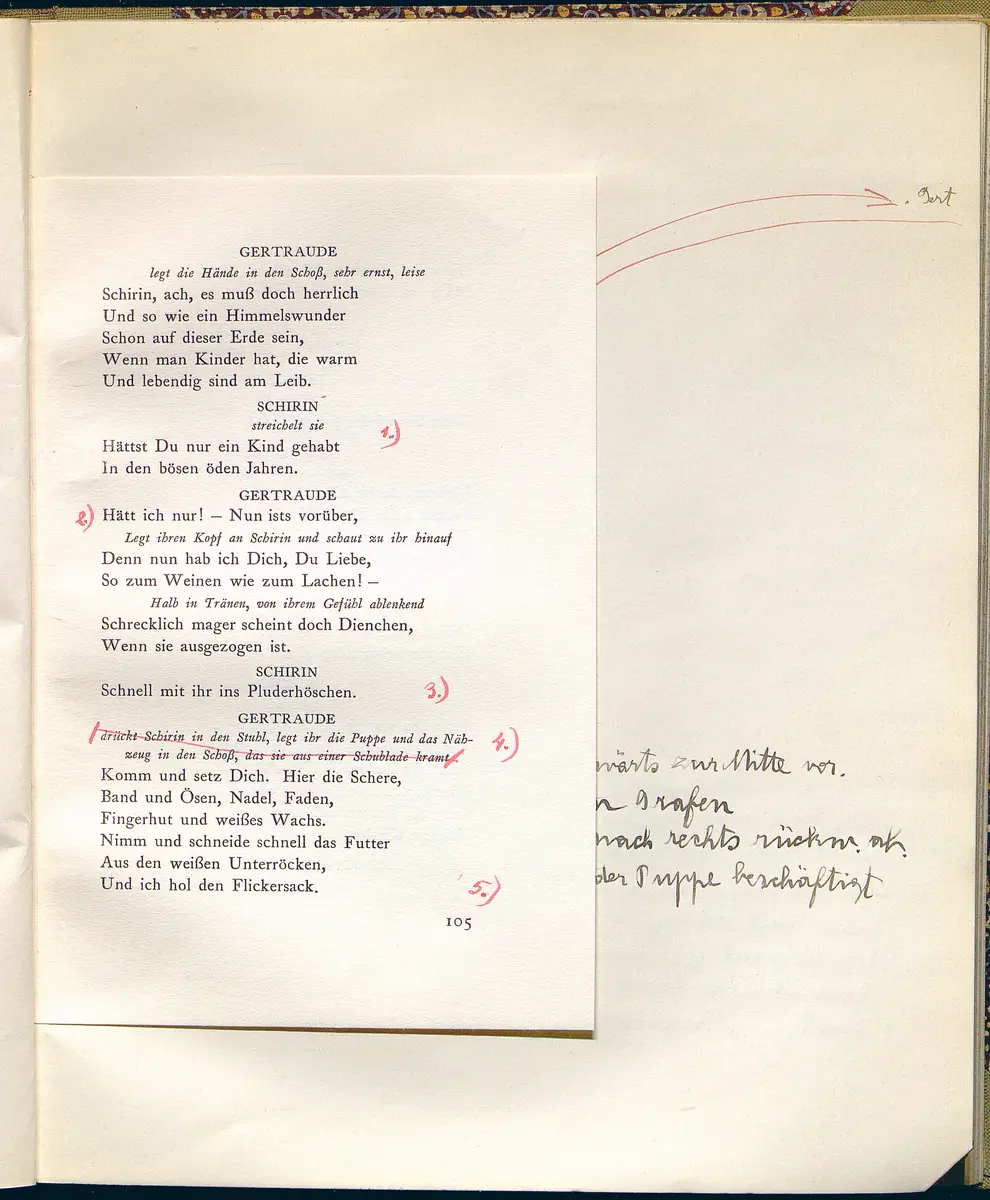 . Gert
GERTRAUDE
legt die Hände in den Schoß, sehr ernst, leise
Schirin, ach, es muß doch herrlich
Und so wie ein Himmelswunder
Schon auf dieser Erde sein,
Wenn man Kinder hat, die warm
Und lebendig sind am Leib.
SCHIRIN
streichelt sie
1.)
Hättst Du nur ein Kind gehabt
In den bösen öden Jahren.
GERTRAUDE
2.) Hätt ich nur! — Nun ists vorüber,
Legt ihren Kopf an Schirin und schaut zu ihr hinauf
Denn nun hab ich Dich, Du Liebe,
So zum Weinen wie zum Lachen! —
Halb in Tränen, von ihrem Gefühl ablenkend
Schrecklich mager scheint doch Dienchen,
Wenn sie ausgezogen ist.
SCHIRIN
Schnell mit ihr ins Pluderhöschen. 3.)
GERTRAUDE
drückt Schirin in den Stuhl, legt ihr die Puppe und das Näh- 4.)
zeug in den Schoß, das sie aus einer Schublade kramt
Komm und setz Dich. Hier die Schere,
Band und Ösen, Nadel, Faden,
Fingerhut und weißes Wachs.
Nimm und schneide schnell das Futter
Aus den weißen Unterröcken,
Und ich hol den Flickersack. 5.)
105
wärts zur Mitte vor.
n Grafen
nach rechts rückw. ab.
der Puppe beschäftigt